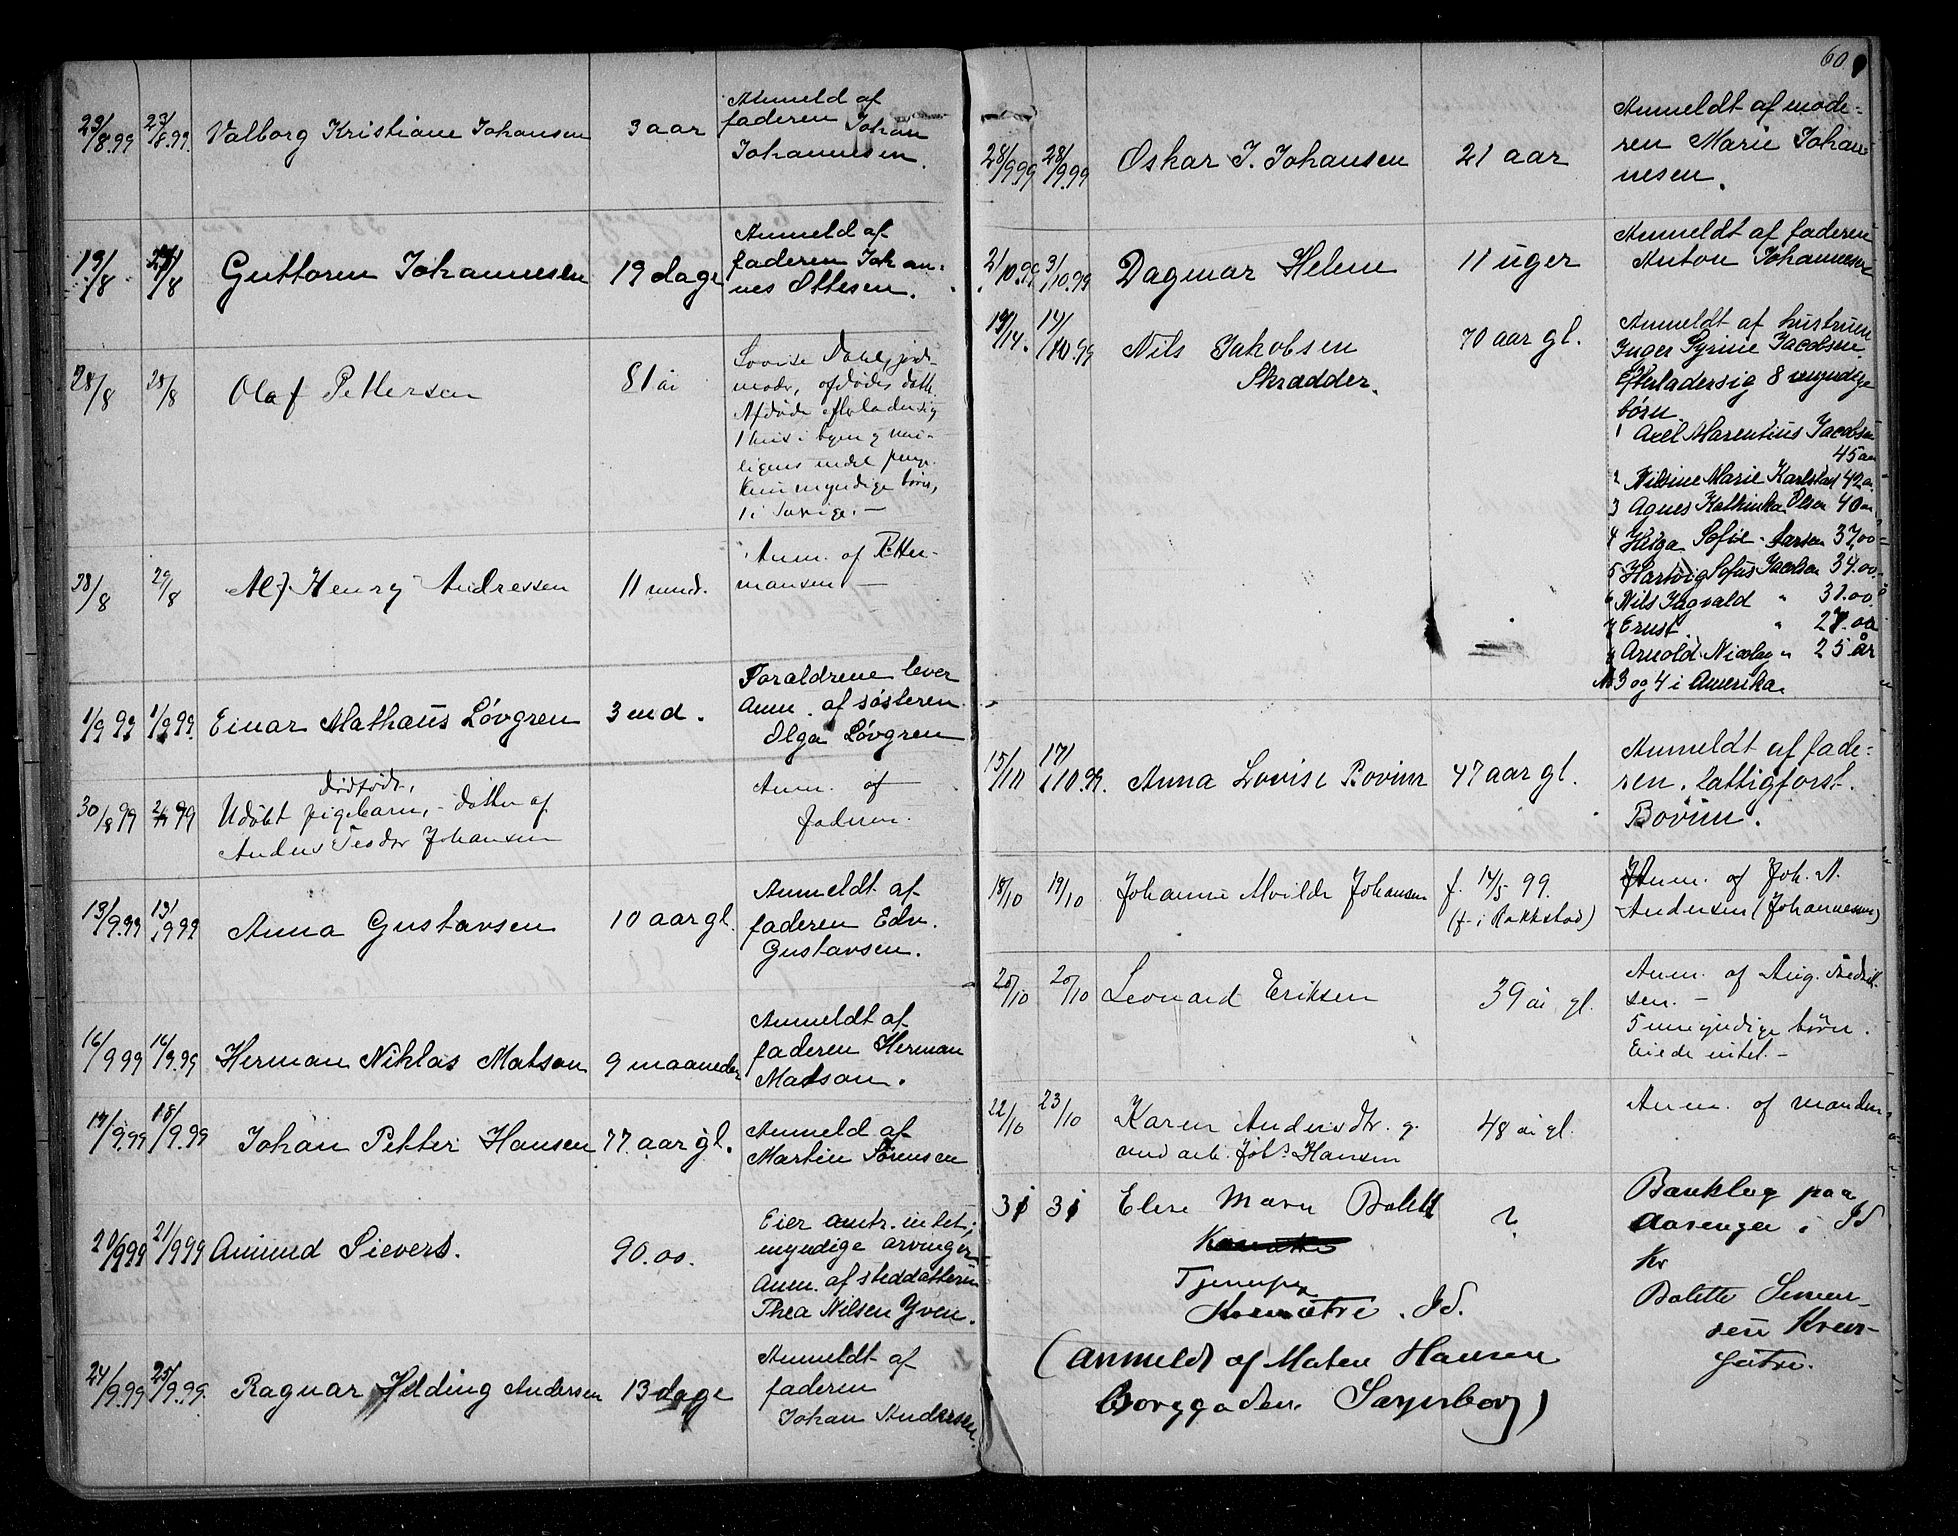 23/8.99 23/8.99. Valborg Kristiane Johansen 3 aar Anmeld af
faderen Johan
Johannesen.
19/8 /8 Guttorm Johannesen 19 dage Anmeld af
faderen Johan-
nes Ottesen.
28/8 28/8 Olaf Pettersen 81 år Lovise Dahl, jord-
moder, afdødes datt.
Afdøde efterlader sig
1 hus i byen
myndige børn,
1 i Sverige. —
28/8 29/8 Alf Henry Andressen 11 mnd. Anm. af
mansen —
1/9 99 1/9 99. Einar Mathæus Løvgren 3 md. Foraldrene lever
Anm. af søsteren
Olga Løvgren
dødfødt,
30/8 99 2/9 99 Udøbt pigebarn, - datter af Anm. af
Anders Teodor Johansen faderen.
13/9.99 15/9 99 Anna Gustavsen 10 aar gl. Anmeldt af
faderen Edv.
Gustavsen.
16/9 99 16/9.99 Herman Niklas Matson 9 maaneder Anmeldt af
faderen Herman
Matson.
17/9.99 18/9.99 Johan Petter Hansen 77 aar gl. Anmeld af
Martin Sørensen
20/9 99 21/9 99 Amund Sievers. 90.oo. Eier intet;
myndige arvinger
Anm. af steddatteren
Thea Nilsen Yven.
24/9.99 25/9.99. Ragnar Hilding Andersen 13 dage Anmeldt af
faderen
Johan Andersen.
60
28/9 99 28/9.99 Oskar J. Johansen 21 aar Anmeldt af mode-
ren Marie Johan-
nesen.
2/10.99 3/10.99 Dagmar Helene 11 uger Anmeldt af faderen
Anton Johannesen
14/10.99 Nils Jakobsen 70 aar gl. Anmeldt af hustruen
Skrædder. Inger Syrine Jacobsen
Efterlader sig 8 myndige
børn.
1 Axel Marentius Jacobsen
45 aar
2 Nilsine Marie Karlstad 42 a.
3 Agnes Kathinka Olsen 40 aar
4 Helga Sofie Larsen 37.oo
5 Hartvig Sofus Jacobsen 34.oo.
6 Nils Ingvald " 31.oo.
7 Ernst " 27.oo
8 Arnold Nicolay " 25 år
No 3 og 4 i Amerika.
15/10 17/10.99. Anna Lovise Bovim 47 aar gl. Anmeldt af fade-
ren, fattigforst.
Bovim.
18/10 19/10 Johanne Alvilde Johansen f. 14/5 99. Anm. af Joh. A.
(f. i Rakkestad) Andersen (Johannesen)
20/10 20/10 Leonard Eriksen 39 år gl. Anm. af Aug. Fredrik-
sen. —
5 umyndige børn.
Eiede intet. —
22/10 23/10 Karen Andersdtr. g. 48 år gl. Anm. af manden
med arb. Johs Hansen
31 31 Elise Marie Bolette ? Bankbog paa
Aarenger i Id
Kr
Tjenerpige Bolette Simen-
Id. sen
sætre.
(Anmeldt af Maten Hansen
Borggaden. Sarpsborg)